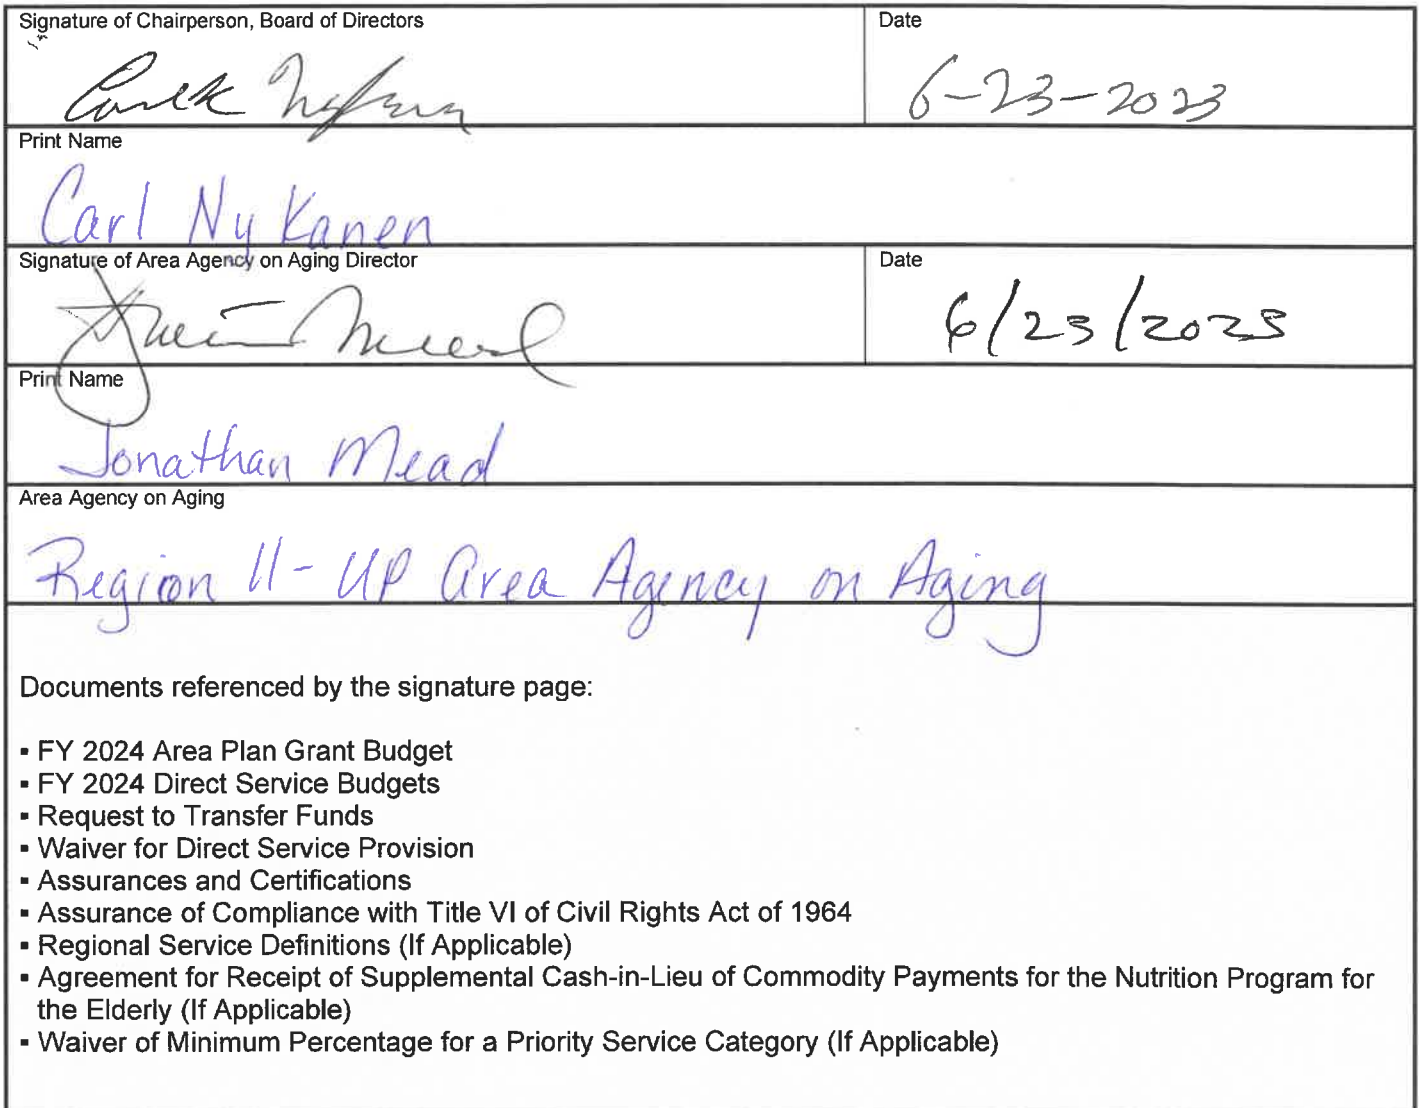 Signature of Chairperson, Board of Directors
Date
6-23-2023
Print Name
Carl Nykanen
Signature of Area Agency on Aging Director
Date
6/23/2023
Print Name
Jonathan Mead
Area Agency on Aging
Region 11- UP Area Agency on Aging
Documents referenced by the signature page:
▪ FY 2024 Area Plan Grant Budget
▪ FY 2024 Direct Service Budgets
▪ Request to Transfer Funds
▪ Waiver for Direct Service Provision
▪ Assurances and Certifications
▪ Assurance of Compliance with Title VI of Civil Rights Act of 1964
▪ Regional Service Definitions (If Applicable)
▪ Agreement for Receipt of Supplemental Cash-in-Lieu of Commodity Payments for the Nutrition Program for
the Elderly (If Applicable)
▪ Waiver of Minimum Percentage for a Priority Service Category (If Applicable)